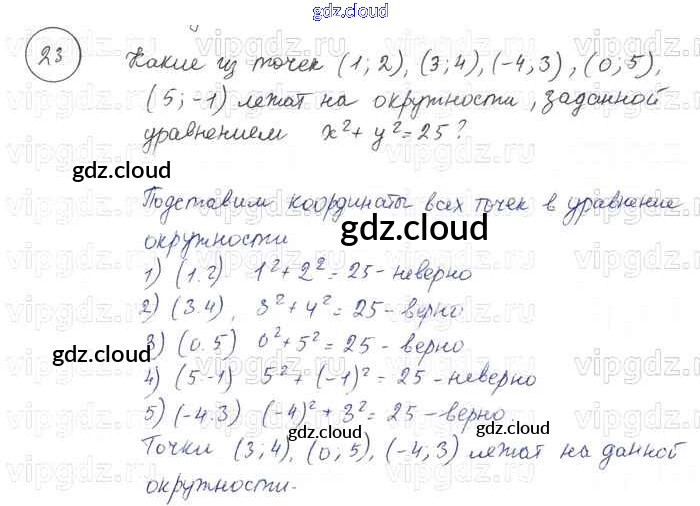 gdz.cloud
23 Какие из точек (1; 2), (3; 4), (-4, 3), (0; 5),
(5; -1) лежат на окружности, заданной
уравнением x²+ y²=25?
gdz.cloud
Подставим координаты всех точек в уравнение
окружности
gdz.cloud
1) (1.2) 1²+2²= 25-неверно
2) (3.4), 3²+4²= 25-верно
3) (0.5) 0²+5²= 25 - верно
gdz.cloud
4) (5-1) 5²+(-1)²= 25 -неверно
5) (-4.3) (-4)²+3²= 25 -верно
gdz.cloud gdz.cloud
Точки (3; 4), (0; 5), (-4; 3) лежат на данной
окружности.